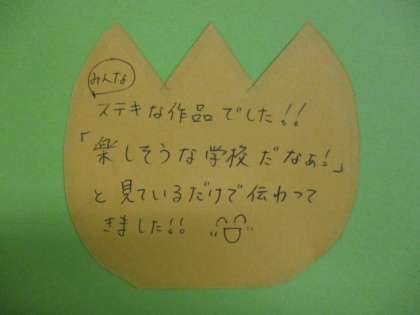 みんな
ステキな作品でした!!
「楽しそうな学校だなぁ!」
と見ているだけで伝わって
きました!!